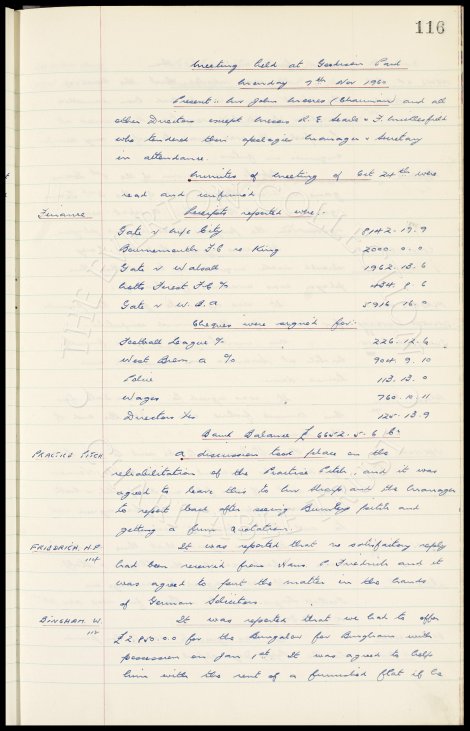 116
Meeting held at Goodison Park
Monday 7th Nov 1960
Present:- Mr John Moores (Chairman) and all
other Directors except Messrs R. E. Searle & F. Micklesfield
who tendered their apologies Manager & Secretary
in attendance.
Minutes of Meeting of Oct 24th were
read and confirmed
Finance Receipts reported were:-
Gate v M/c City 8142. 19. 9
Bournemouth F.C. re King 2000. 0. 0
Gate v Walsall 1962. 18. 6
Notts Forest F.C. % 484. 8. 6
Gate v W.B.A 5916. 16. 0
Cheques were signed for:-
Football League % 226. 12. 6
West Brom. A % 904. 9. 10
Police 113. 13. 0
Wages 760. 10. 11
Directors Xes 125. 13. 9
Bank Balance £ 6652. 5. 6 Cr
PRACTICE PITCH A discussion took place on the
rehabilitation of the Practice Pitch, and it was
agreed to leave this to Mr Sharp and the Manager
to report back after seeing Burnley pitch and
getting a firm quotation.
FRIEDRICH. H.P. It was reported that no satisfactory reply
114 had been received from Hans P Friedrich and it
was agreed to put the matter in the hands
of German Solicitors.
BINGHAM. W. It was reported that we had to offer
112 £2850.0.0 for the Bungalow for Bingham with
possession on Jan 1st. It was agreed to help
him with the rent of a furnished flat if he